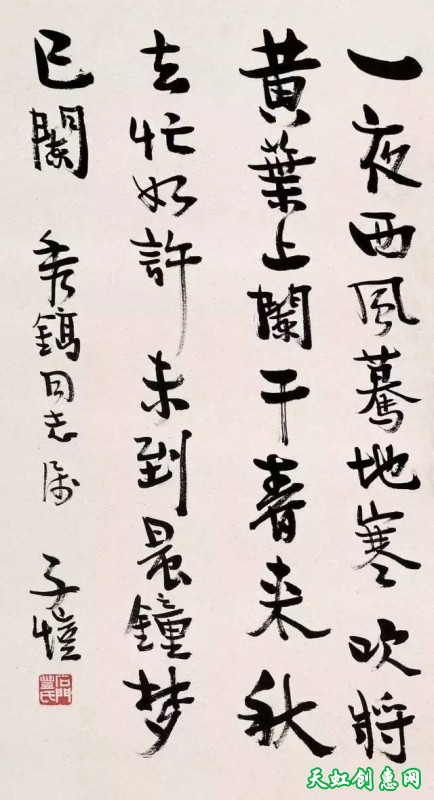 一夜西風驀地寒吹將
黄葉上闌干春来秋
去忙如許未到晨鐘梦
已闌 秀鎬同志属 子愷
石門豐氏
天虹创惠网